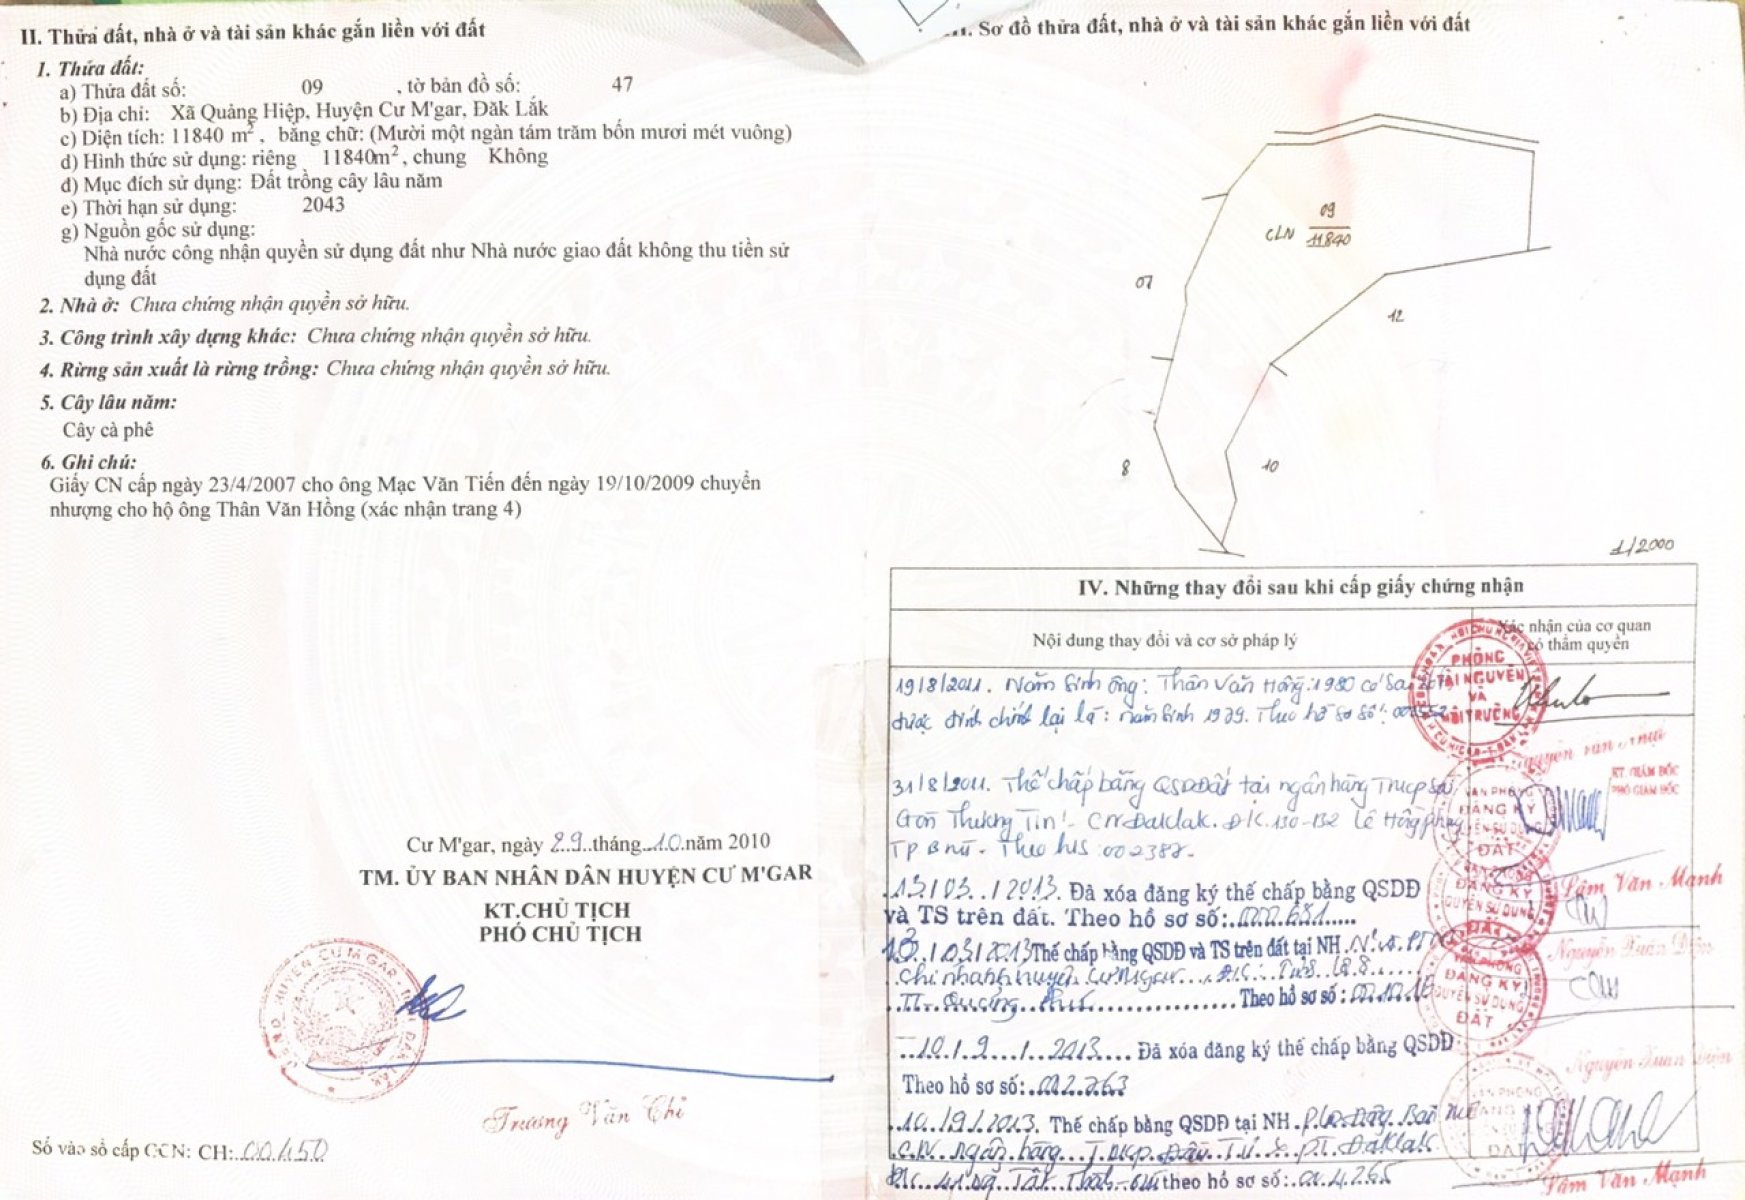 II. Thửa đất, nhà ở và tài sản khác gắn liền với đất
1. Thửa đất:
a) Thửa đất số: 09 , tờ bản đồ số: 47
b) Địa chỉ: Xã Quảng Hiệp, Huyện Cư M'gar, Đăk Lắk
c) Diện tích: 11840 m², bằng chữ: (Mười một ngàn tám trăm bốn mươi mét vuông)
d) Hình thức sử dụng: riêng 11840m², chung Không
đ) Mục đích sử dụng: Đất trồng cây lâu năm
e) Thời hạn sử dụng: 2043
g) Nguồn gốc sử dụng:
Nhà nước công nhận quyền sử dụng đất như Nhà nước giao đất không thu tiền sử
dụng đất
2. Nhà ở: Chưa chứng nhận quyền sở hữu.
3. Công trình xây dựng khác: Chưa chứng nhận quyền sở hữu.
4. Rừng sản xuất là rừng trồng: Chưa chứng nhận quyền sở hữu.
5. Cây lâu năm:
Cây cà phê
6. Ghi chú:
Giấy CN cấp ngày 23/4/2007 cho ông Mạc Văn Tiến đến ngày 19/10/2009 chuyển
nhượng cho hộ ông Thân Văn Hồng (xác nhận trang 4)
Cư M'gar, ngày 29 tháng 10 năm 2010
TM. ỦY BAN NHÂN DÂN HUYỆN CƯ M'GAR
KT.CHỦ TỊCH
PHÓ CHỦ TỊCH
Trương Văn Chỉ
Số vào sổ cấp GCN: CH: 00450
III. Sơ đồ thửa đất, nhà ở và tài sản khác gắn liền với đất
09
CLN 11840
07
12
8
10
1/2000
IV. Những thay đổi sau khi cấp giấy chứng nhận
Nội dung thay đổi và cơ sở pháp lý
Xác nhận của cơ quan
có thẩm quyền
19/8/2011. Năm sinh ông: Thân Văn Hồng: 1980 có sai sót
được đính chính lại là: năm sinh 1979. Theo hồ sơ số:
PHÒNG
TÀI NGUYÊN
VÀ
MÔI TRƯỜNG
KT. GIÁM ĐỐC
PHÓ GIÁM ĐỐC
31/8/2011. Thế chấp bằng QSDĐất tại ngân hàng TMCP Sài
Gòn Thương Tín - CN Daklak. Đ/c. 130-132 Lê Hồng Phong
TP BMT. Theo hs: 002387.
VĂN PHÒNG
ĐĂNG KÝ
QUYỀN SỬ DỤNG
ĐẤT
Lâm Văn Mạnh
13/03/2013. Đã xóa đăng ký thế chấp bằng QSDĐ
và TS trên đất. Theo hồ sơ số: 000.651
ĐĂNG KÝ
QUYỀN SỬ DỤNG
ĐẤT
Nguyễn Xuân Diện
13/03/2013 Thế chấp bằng QSDĐ và TS trên đất tại NH. No & PTNT
Chi nhánh huyện Cư M'gar. Đ/c:
TT. Quảng Phú Theo hồ sơ số: 001016
VĂN PHÒNG
ĐĂNG KÝ
QUYỀN SỬ DỤNG
ĐẤT
Nguyễn Xuân Diện
10/9/2013 Đã xóa đăng ký thế chấp bằng QSDĐ
Theo hồ sơ số: 002.263
10/9/2013. Thế chấp bằng QSDĐ tại NH.
CN Ngân hàng TMCP Đầu Tư & PT. Daklak
Theo hồ sơ số: 004.265
Lâm Văn Mạnh